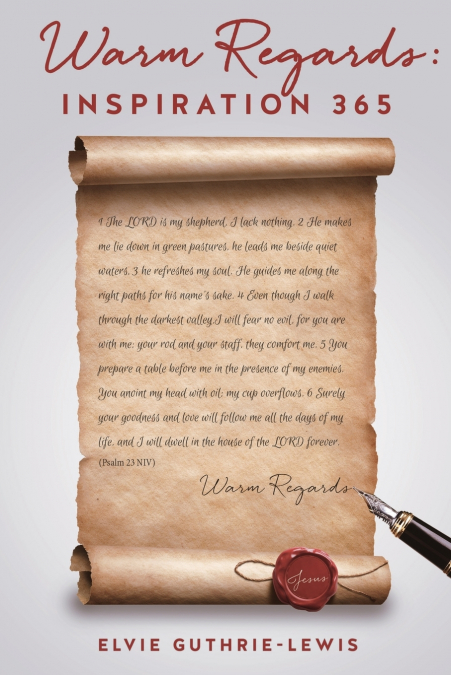 Warm Regards:
INSPIRATION 365
1 The LORD is my shepherd, I lack nothing. 2 He makes
me lie down in green pastures, he leads me beside quiet
waters, 3 he refreshes my soul. He guides me along the
right paths for his name's sake. 4 Even though I walk
through the darkest valley,I will fear no evil, for you are
with me; your rod and your staff, they comfort me. 5 You
prepare a table before me in the presence of my enemies.
You anoint my head with oil; my cup overflows. 6 Surely
your goodness and love will follow me all the days of my
life, and I will dwell in the house of the LORD forever.
(Psalm 23 NIV)
Warm Regards
Jesus
ELVIE GUTHRIE-LEWIS